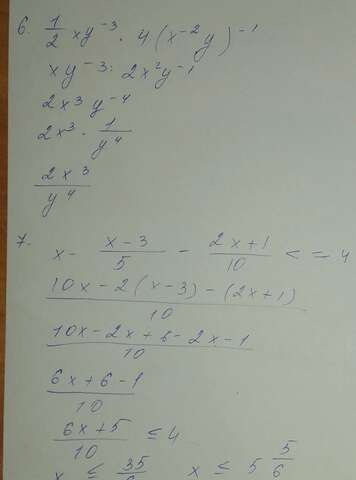 6. 1/2 xy⁻³ · 4(x⁻²y)⁻¹
xy⁻³ · 2x²y⁻¹
2x³y⁻⁴
2x³ · 1/y⁴
2x³/y⁴
7. x - (x-3)/5 - (2x+1)/10 <= 4
(10x-2(x-3)-(2x+1))/10
(10x-2x+6-2x-1)/10
(6x+6-1)/10
(6x+5)/10 ≤ 4
x ≤ 35/6 x ≤ 5 5/6